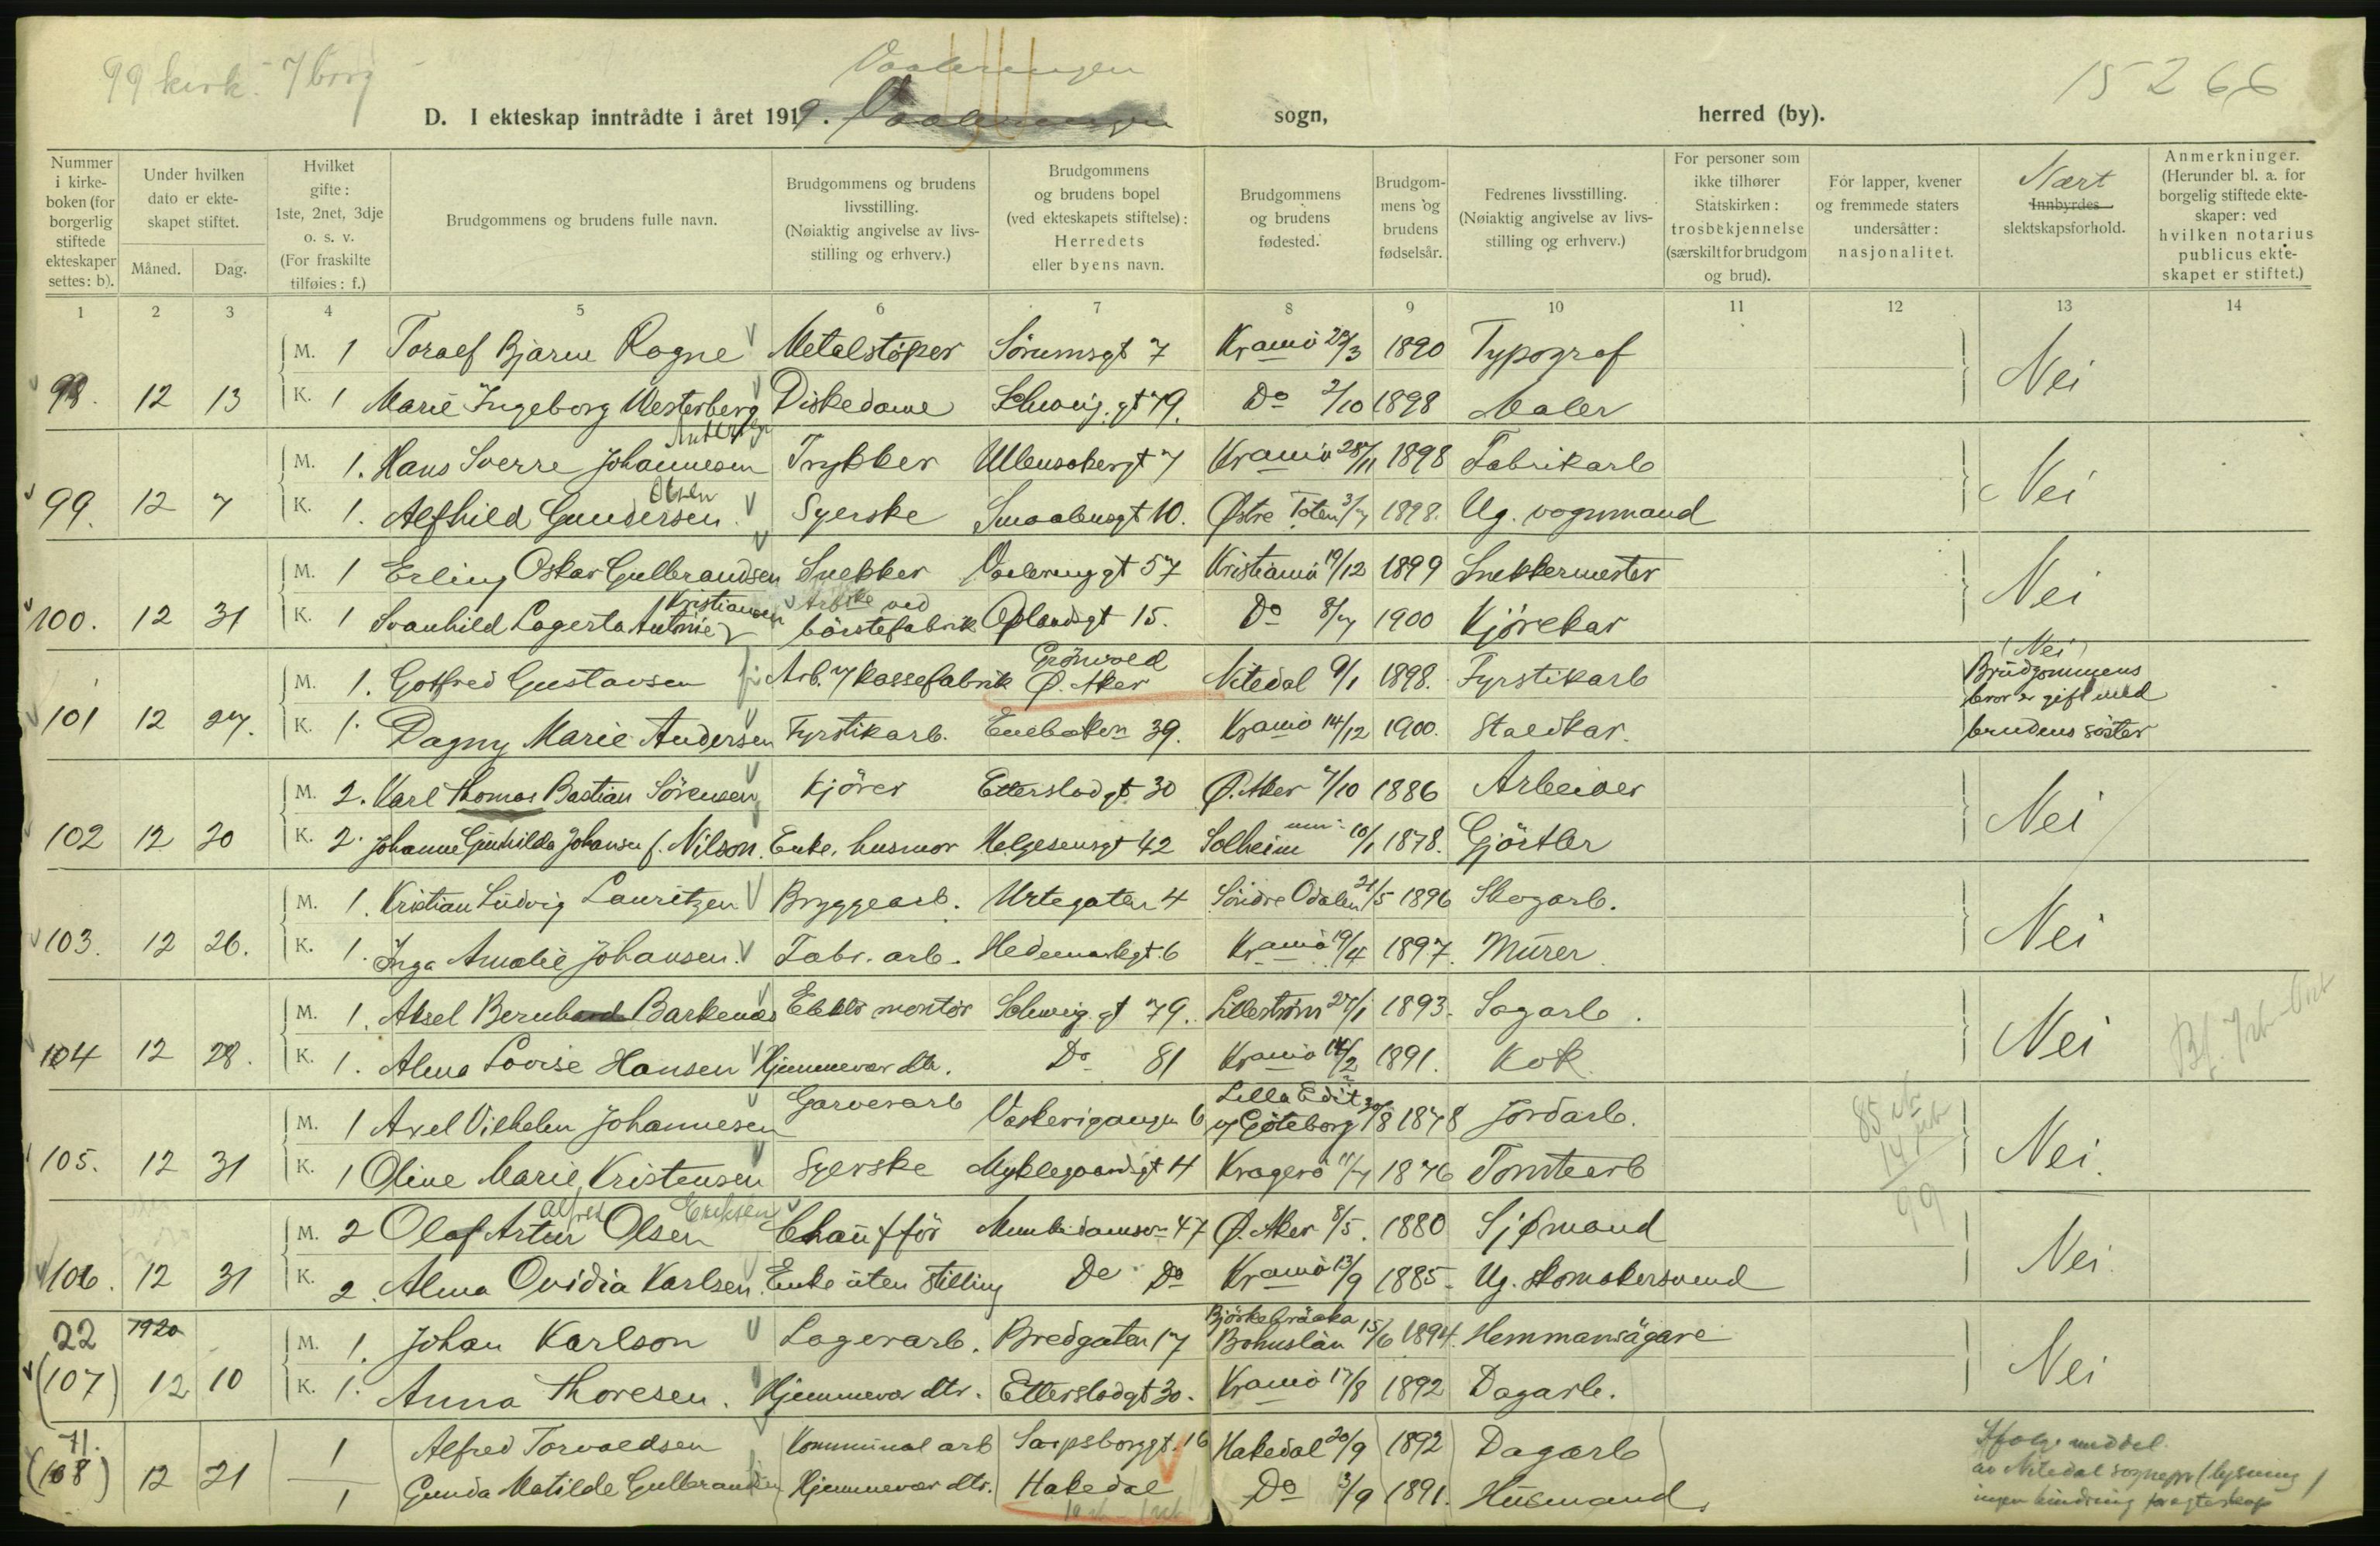 99 kirk. 7 borg
Vaalerengen
15266
D. I ekteskap inntrådte i året 1919. Vaalerengen sogn, herred (by).
Nummer i kirkeboken (for borgerlig stiftede ekteskaper settes: b).
Under hvilken dato er ekteskapet stiftet.
Måned. Dag.
Hvilket gifte: 1ste, 2net, 3dje o. s. v. (For fraskilte tilføies: f.)
Brudgommens og brudens fulle navn.
Brudgommens og brudens livsstilling. (Nøiaktig angivelse av livsstilling og erhverv.)
Brudgommens og brudens bopel (ved ekteskapets stiftelse): Herredets eller byens navn.
Brudgommens og brudens fødested.
Brudgommens og brudens fødselsår.
Fedrenes livsstilling. (Nøiaktig angivelse av livsstilling og erhverv.)
For personer som ikke tilhører Statskirken: trosbekjennelse (særskilt for brudgom og brud).
For lapper, kvener og fremmede staters undersåtter: nasjonalitet.
Nært Innbyrdes slektskapsforhold.
Anmerkninger. (Herunder bl. a. for borgelig stiftede ekteskaper: ved hvilken notarius publicus ekteskapet er stiftet.)
1 2 3 4 5 6 7 8 9 10 11 12 13 14
M. 1 Toralf Bjarne Rogne Metalstøper Sörumsgt 7 Kr.ania 23/3 1890 Typograf
98. 12 13 K. 1 Marie Ingeborg Westerberg Diskedame Schweig.gt 79. Do 2/10 1898 Maler Nei
Andersen
M. 1. Hans Sverre Johannesen Trykker Ulensakergt 7 Kr.ania 28/11 1898 Fabrikarb
Olsen
99. 12 7 K. 1. Alfhild Gundersen. Syerske Smaalensgt 10. Østre Toten 3/7 1898. Ug. vognmand Nei
M. 1 Erling Oskar Gulbrandsen Snekker Vaalerenggt 57 Kristiania 19/12 1899 Snekkermester
Kristiansen Arbske ved
100. 12 31 K. 1 Svanhild Lagerta Antonie börstefabrik Oplandsgt 15. Do 8/7 1900 Kjörekar Nei
Grönvold
M. 1. Gotfred Gustavsen Arb. v/ kassefabrik Ø. Aker Nitedal 9/1 1898. Fyrstikarb
(Nei)
Brudgommens
bror er gift med
brudens söster
101 12 27. K. 1. Dagny Marie Andersen Fyrstikarb. Enebakvn 39. Kr.ania 14/12 1900. Staldkar.
M. 2. Karl Thomas Bastian Sörensen Kjörer Etterstadgt 30 Ø. Aker 7/10 1886 Arbeider
102 12 20 K. 2. Johanne Gunhilda Johansen f. Nilson. Enke, husmor Helgesensgt 42 Solheim 10/1 1878. Gjörtler Nei
M. 1. Kristian Ludvig Lauritzen Bryggearb. Urtegaten 4 Söndre Odalen 21/5 1896 Skogarb.
103. 12 26. K. 1. Inga Amalie Johansen. Fabr. arb. Hedemarkgt. 6 Kr.ania 19/4 1897. Murer. Nei
M. 1. Aksel Bernhard Barkenæs Elektr montör Schweig.gt 79. Lilleström 27/1 1893. Sagarb.
104 12 28. K. 1. Alma Lovise Hansen Hjemmevær. dtr. Do 81 Kr.ania 14/2 1891. Kok Nei
Lilla Edit
M. 1 Axel Vilhelm Johannesen Garverarb Vaskerigangen 6 v/ Göteborg 30/8 1878 Jordarb.
105. 12 31 K. 1 Oline Marie Kristensen Syerske Myklegaardsgt 4 Kragerö 11/7 1876 Tomtearb Nei.
85
14
99
Alfred Eriksen
M. 2 Olaf Artur Olsen Chaufför Munkedamsvn 47 Ø. Aker 8/5. 1880 Sjømand
106. 12 31 K. 2. Alma Ovidia Karlsen. Enke uten stilling Do Do Kr.ania 13/9 1885. Ug. Skomakersvend Nei.
22 1920
Björkebräcka
M. 1. Johan Karlson Lagerarb. Bredgaten 17 Bohuslän 15/6 1894. Hemmansägare
(107) 12 10 K. 1. Anna Thoresen. Hjemmevær dtr. Etterstadgt 30. Kr.ania 17/8 1892 Dagarb. Nei
71.
1 Alfred Torvaldsen Kommunal arb Sarpsborggt. 16 Hakedal 20/9 1892 Dagarb
(108) 12 21 1 Gunda Matilde Gulbrandsen Hjemmevær dtr. Hakedal Do 3/9 1891. Husmand.
Ifølge meddel.
av Nitedal sognepr (lysning)
ingen hindring for egteskap